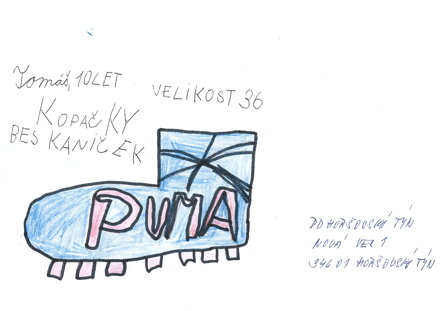 Tomáš, 10LET
VELIKOST 36
KOPAČKY
BEŠ KANIČEK
PUMA
DD HORŠOVSKÝ TÝN
NOVÁ VES 1
346 01 HORŠOVSKÝ TÝN